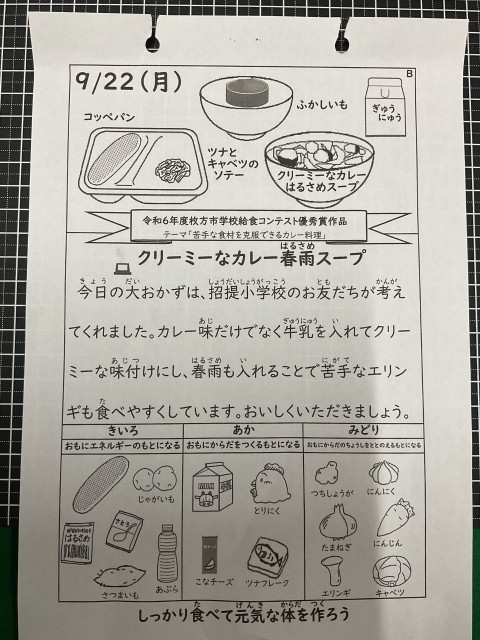 9/22(月)
B
ふかしいも
ぎゅうにゅう
コッペパン
ツナと
キャベツの
ソテー
クリーミーなカレー
はるさめスープ
令和6年度枚方市学校給食コンテスト優秀賞作品
テーマ「苦手な食材を克服できるカレー料理」
はるさめ
クリーミーなカレー春雨スープ
きょう だい しょうだいしょうがっこう とも かんが
今日の大おかずは、招提小学校のお友だちが考え
あじ ぎゅうにゅう い
てくれました。カレー味だけでなく牛乳を入れてクリー
あじつ はるさめ い にがて
ミーな味付けにし、春雨も入れることで苦手なエリン
た
ギも食べやすくしています。おいしくいただきましょう。
きいろ あか みどり
おもにエネルギーのもとになる おもにからだをつくるもとになる おもにからだのちょうしをととのえるもとになる
じゃがいも とりにく つちしょうが にんにく
はるさめ さとう たまねぎ にんじん
さつまいも あぶら こなチーズ ツナフレーク エリンギ キャベツ
た げんき からだ つく
しっかり食べて元気な体を作ろう